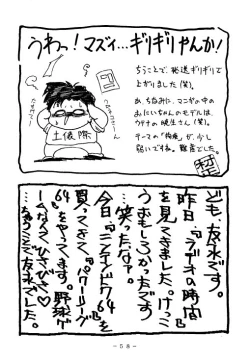 うわっ!マズィ…ギリギリやんか!
ちうことで、発送ギリギリで
上がりました(笑)。
あ、ちなみに、マンガの中の
おにいちゃんのモデルは、
ウテナの暁生さん(笑)。
テーマの「拘束」が、少し
弱いですね。難産でした。
ども、友永です。
昨日『ラヂオの時間』
を見てきました。けっこ
うおもしろかったです
…笑ったなァ。
今日『ニンテンドウ64』を
買ってきて、『パワーリーグ
64』をやってます。野球ゲ
ームなんてひさびさ♡
…ちうことで友永でした。
-58-